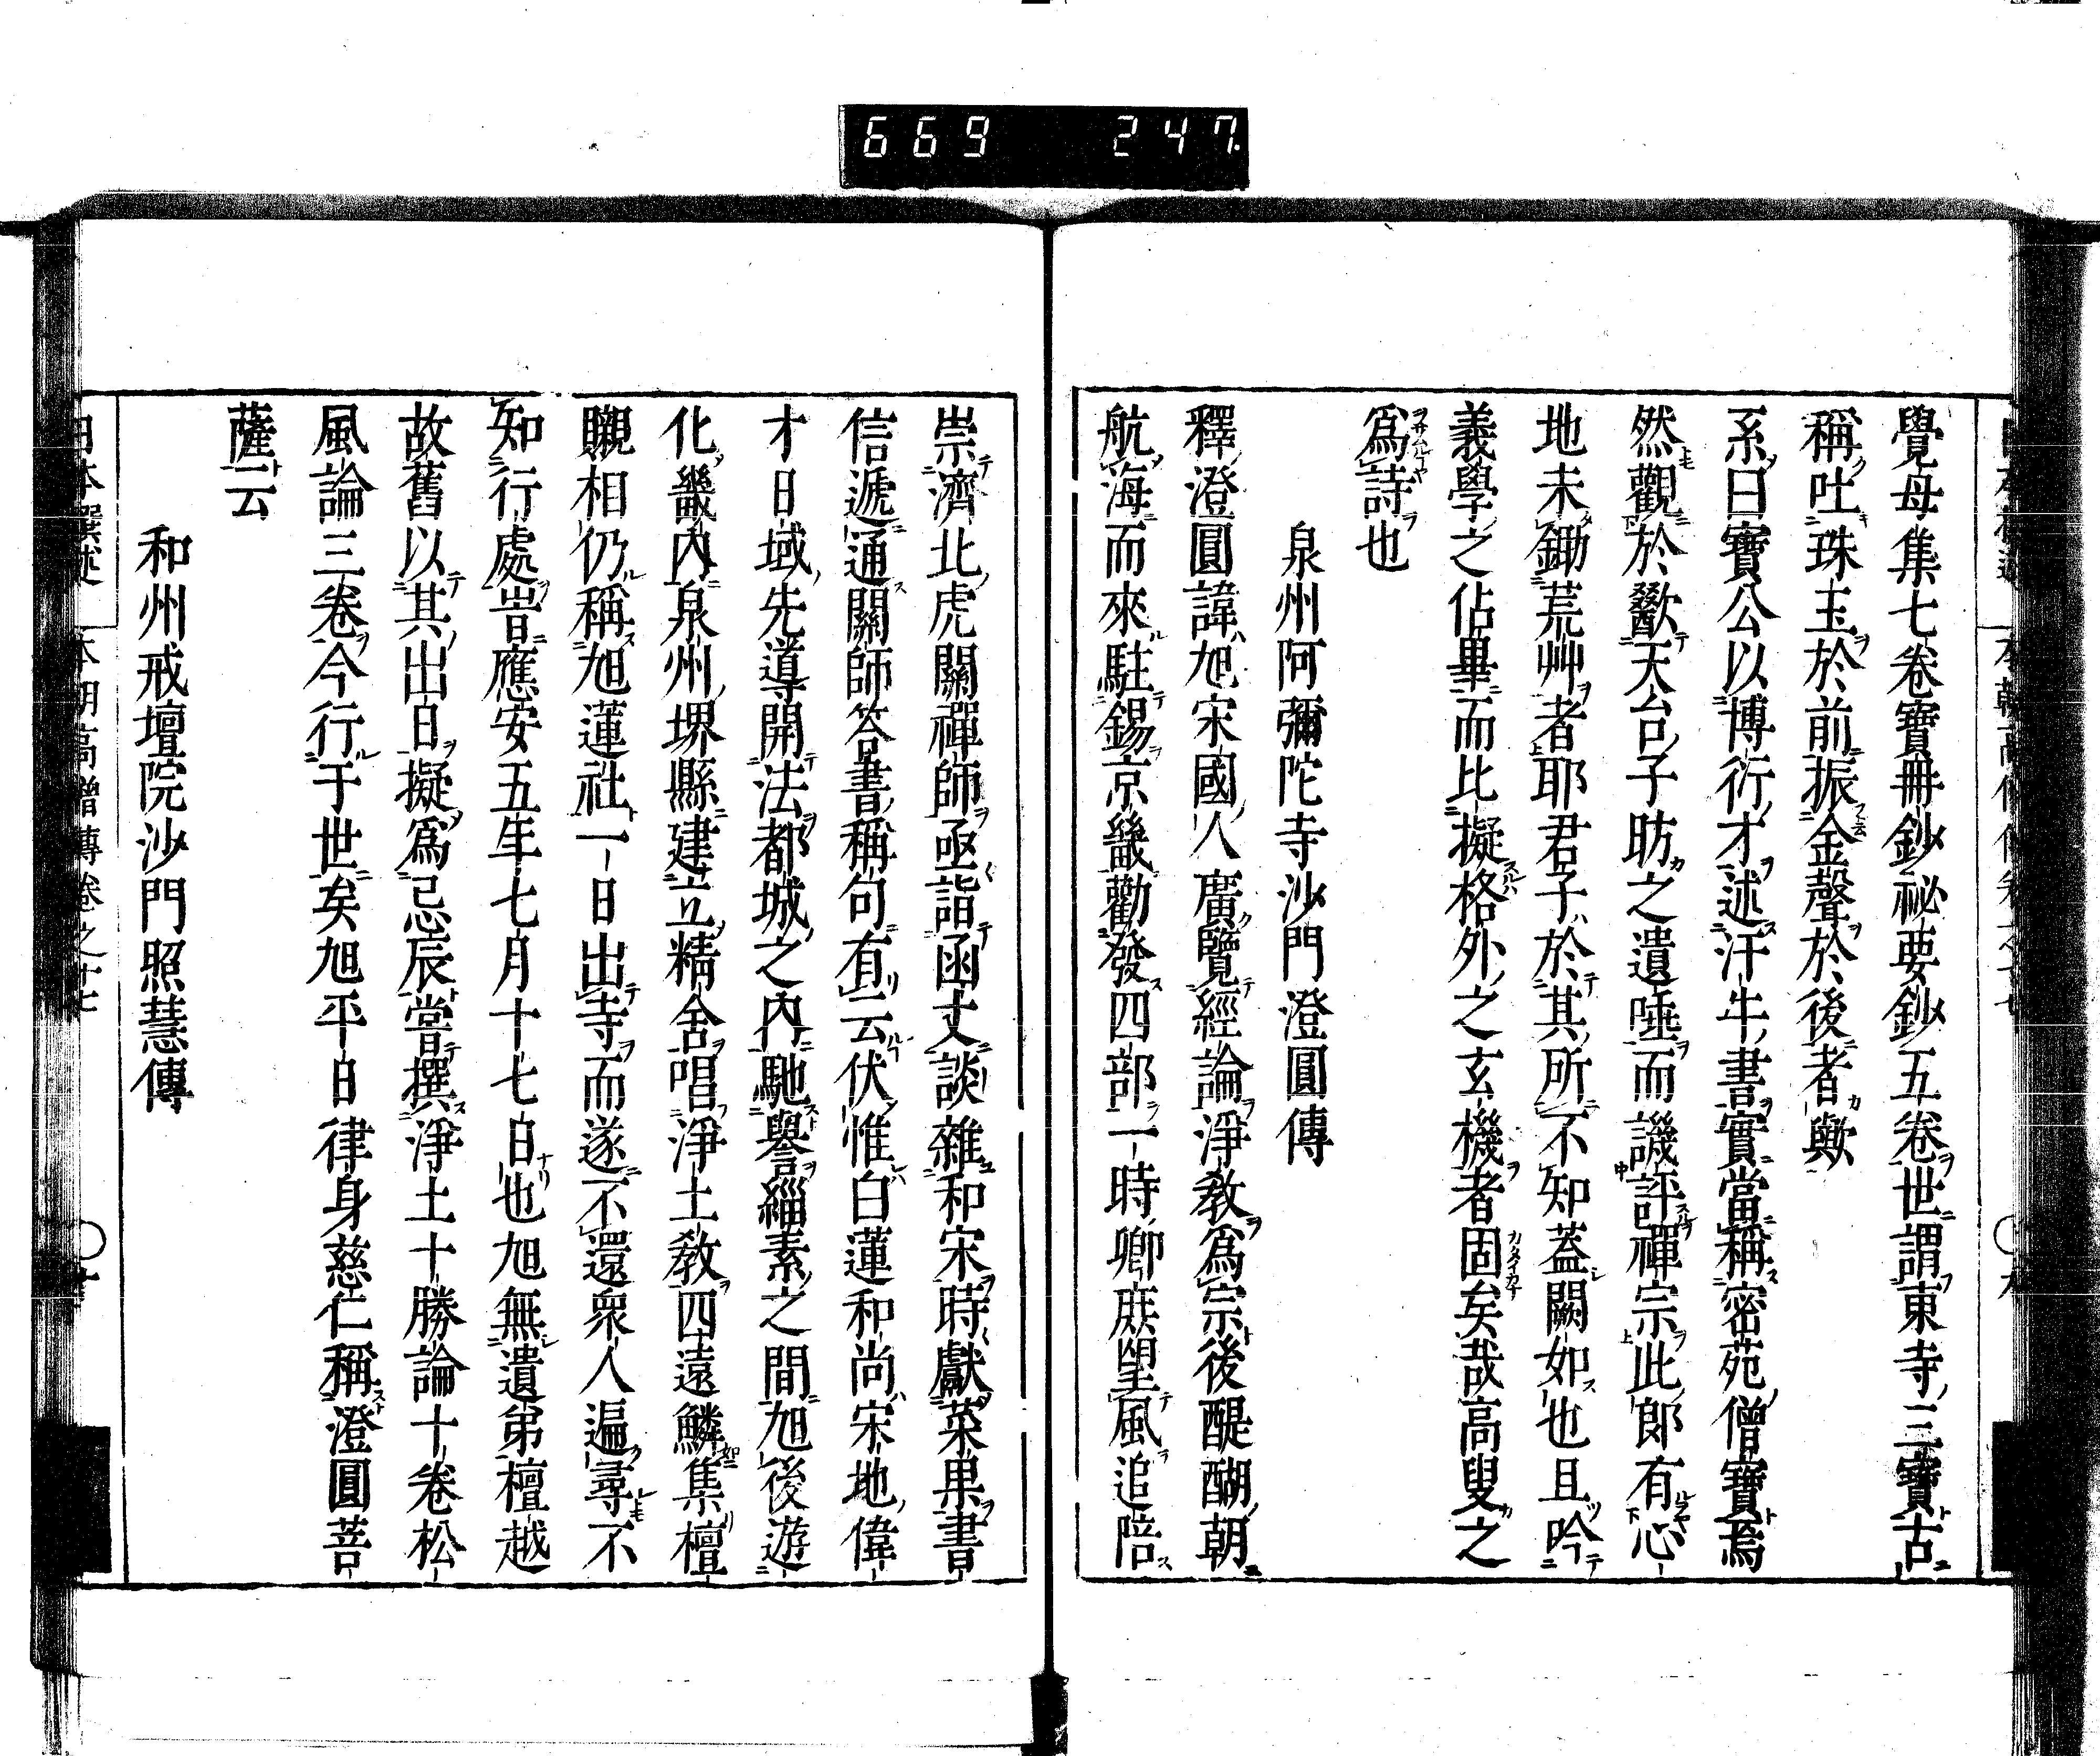 669 247
覺母集七卷寶冊鈔祕要鈔五卷世謂東寺三寶古
稱吐珠玉於前振金聲於後者歟
系曰寶公以博衍才述汗牛書實當稱密苑僧寶焉
然觀於歠天台子昉之遺唾而譏評禪宗此郎有心
地未鋤荒艸者耶君子於其所不知蓋闕如也且吟
義學之佔畢而比擬格外之玄機者固矣哉高叟之
爲詩也
泉州阿彌陀寺沙門澄圓傳
釋澄圓諱旭宋國人廣覽經論淨教爲宗後醍醐朝
航海而來駐錫京畿勸發四部一時卿庶望風追陪
崇濟北虎關禪師亟詣函丈談雜和宋時獻菜果書
信遞通關師答書稱句有云伏惟白蓮和尚宋地偉
才日域先導開法都城之內馳譽緇素之間旭後遊
化畿內泉州堺縣建立精舍唱淨土教四遠鱗集檀
䞋相仍稱旭蓮社一日出寺而遂不還衆人遍尋不
知行處旹應安五年七月十七日也旭無遺弟檀越
故舊以其出日擬爲忌辰嘗撰淨土十勝論十卷松
風論三卷今行于世矣旭平日律身慈仁稱澄圓菩
薩云
和州戒壇院沙門照慧傳
日本撰述 本朝高僧傳卷之十七